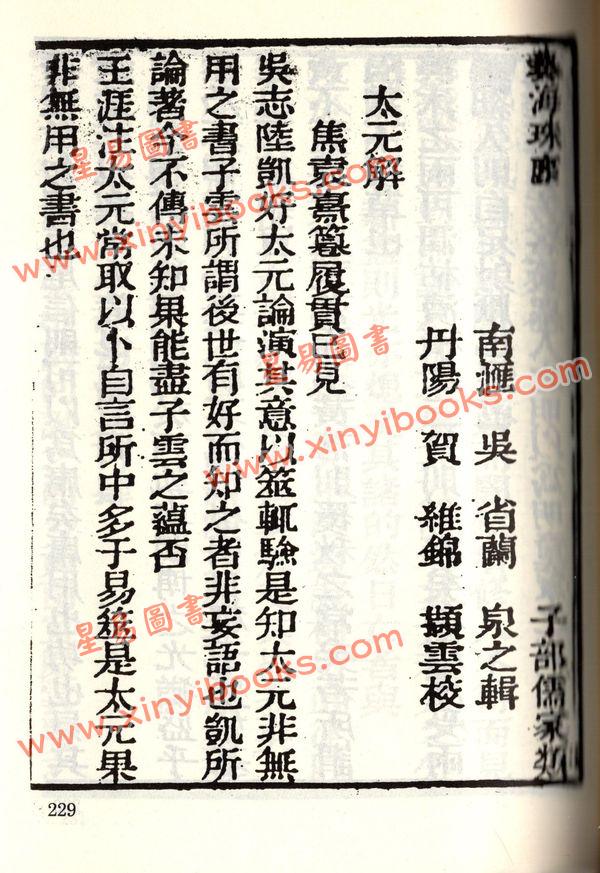 藝海珠塵
子部儒家類
南滙 吳 省蘭 泉之輯
丹陽 賀 維錦 擷雲校
太元解
焦袁熹篹履貫已見
吳志陸凱好太元論演其意以筮輒驗是知太元非無
用之書子雲所謂後世有好而知之者非妄語也凱所
論著今不傳未知果能盡子雲之蘊否
王涯注太元常取以卜自言所中多于易筮是太元果
非無用之書也
229
星易圖書
www.xinyibooks.com
星易圖書
www.xinyibooks.com
星易圖書
www.xinyibooks.com
星易圖書
www.xinyibooks.com